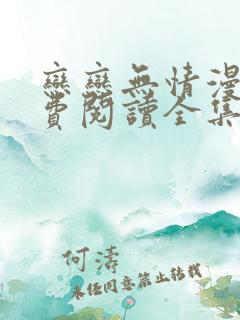 戀戀無情漫
費閱讀全集
何濤
未经同意禁止转载